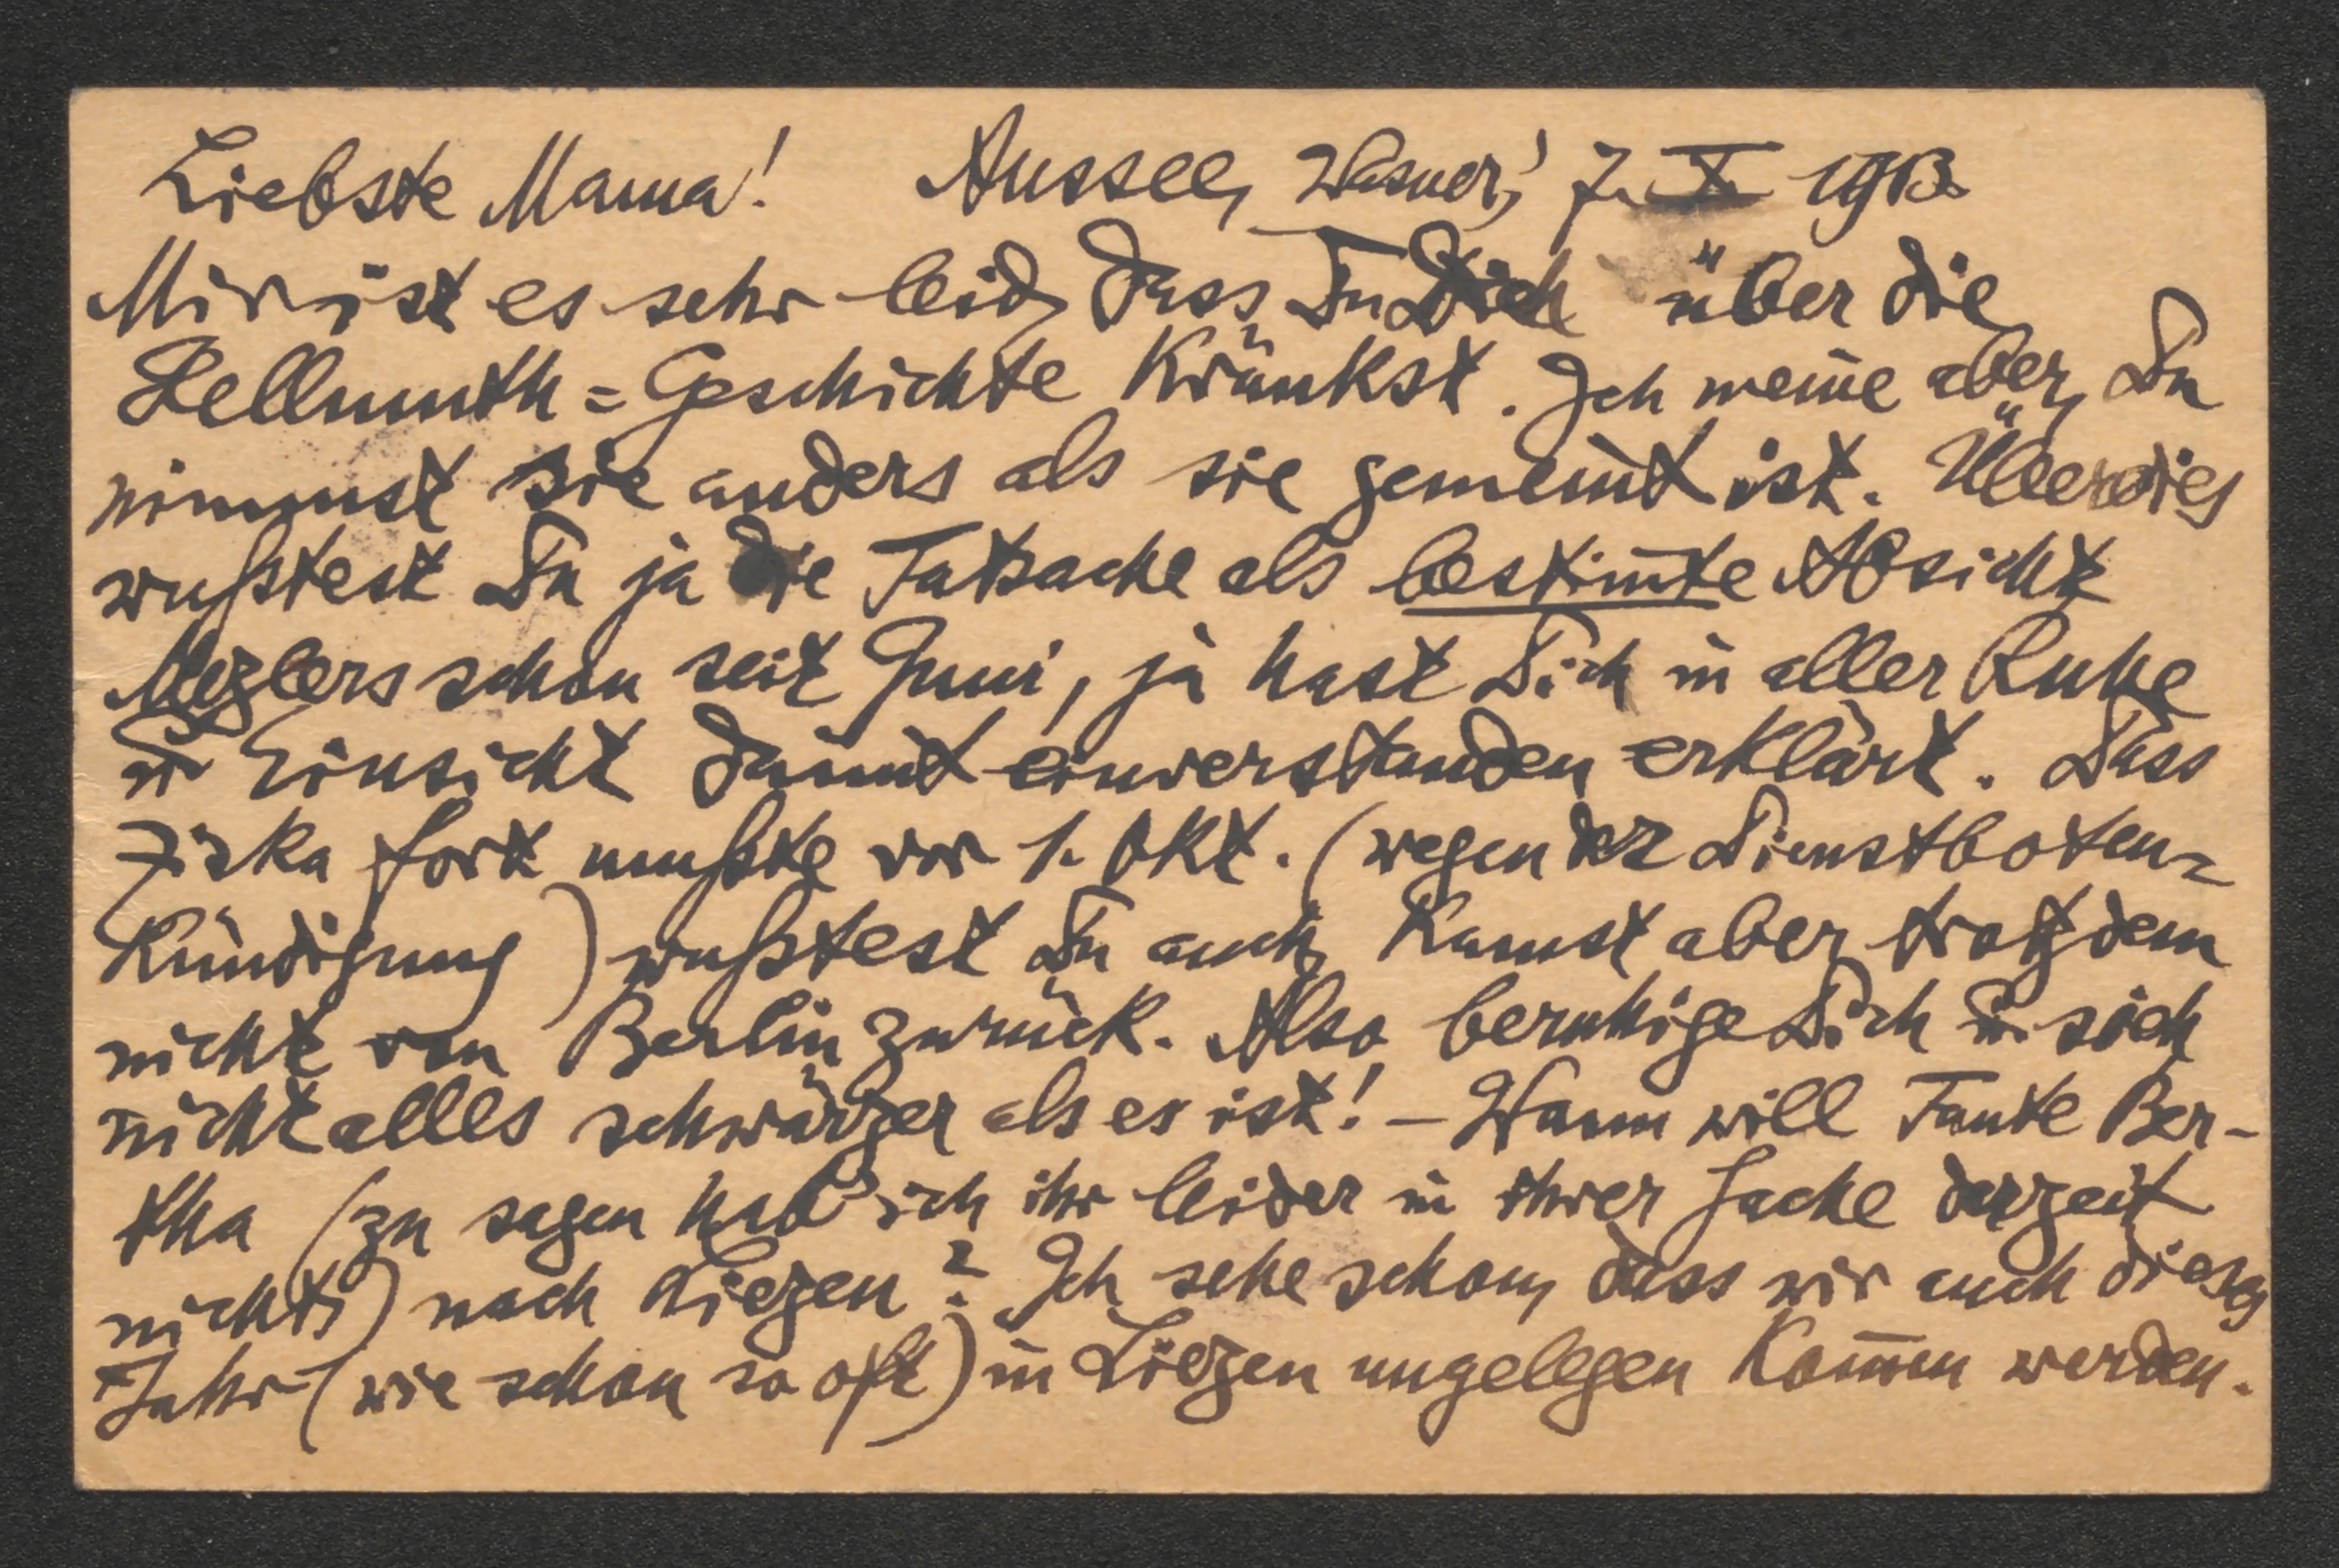 Liebste Mama! Aussee, Wasner, 7. X 1913.
Mir ist es sehr leid, dass Du Dich über die
Hellmuth=Geschichte kränkst. Ich meine aber, Du
nimmst sie anders als sie gemeint ist. Überdies
wußtest Du ja die Tatsache als bestim̄te Absicht
Mezlers schon seit Juni, ja hast Dich in aller Ruhe
u Einsicht damit einverstanden erklärt. Dass
Ziska fort mußte vor 1. Okt. (wegen der Dienstboten=
kündigung) wußtest Du auch, kamst aber trotzdem
nicht von Berlin zurück. Also beruhige Dich u. sieh
nicht alles schwärzer als es ist! – Wann will Tante Ber-
tha (zu sagen hab' ich ihr leider in ihrer Sache derzeit
nichts) nach Liezen? Ich sehe schon, dass wir auch dieses
Jahr (wie schon so oft) in Liezen ungelegen kom̄en werden.